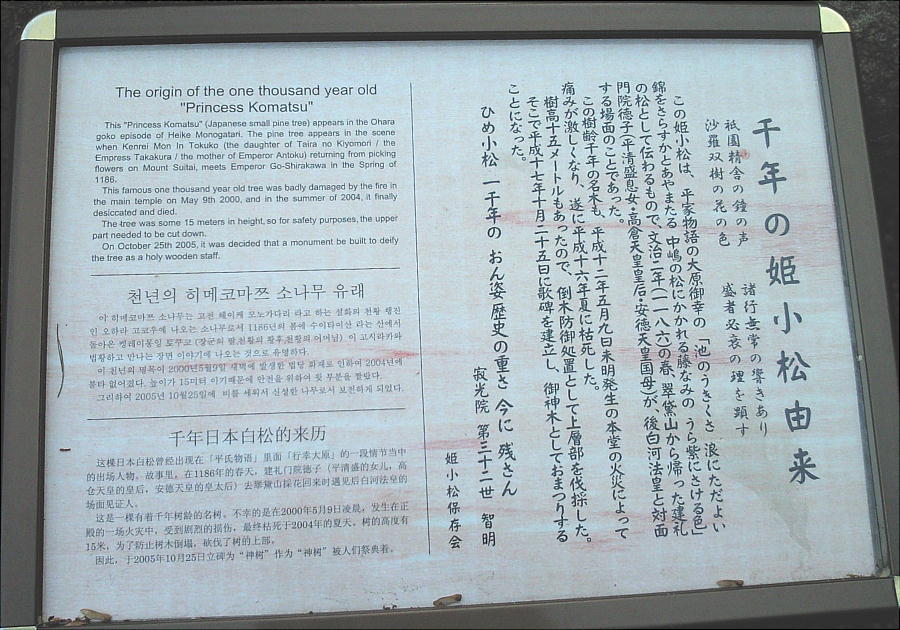 The origin of the one thousand year old
"Princess Komatsu"
This "Princess Komatsu" (Japanese small pine tree) appears in the Ohara
goko episode of Heike Monogatari. The pine tree appears in the scene
when Kenrei Mon In Tokuko (the daughter of Taira no Kiyomori / the
Empress Takakura / the mother of Emperor Antoku) returning from picking
flowers on Mount Suitai, meets Emperor Go-Shirakawa in the Spring of
1186.
This famous one thousand year old tree was badly damaged by the fire in
the main temple on May 9th 2000, and in the summer of 2004, it finally
desiccated and died.
The tree was some 15 meters in height, so for safety purposes, the upper
part needed to be cut down.
On October 25th 2005, it was decided that a monument be built to deify
the tree as a holy wooden staff.
천년의 히메코마쯔 소나무 유래
이 히메코마쯔 소나무는 고전 헤이케 모노가타리 라고 하는 설화의 천황 행진
인 오하라 고코우에 나오는 소나무로서 1186년의 봄에 수이타이산 라는 산에서
돌아온 켄레이몽잉 토쿠코 (장군의 딸,천황의 황후,천황의 어머님) 이 고시라카와
법황하고 만나는 장면 이야기에 나오는 것으로 유명하다.
이 천년의 명목이 2000년5월9일 새벽에 발생한 법당 화재로 인하여 2004년에
불타 없어졌다. 높이가 15미터 이기때문에 안전을 위하여 윗 부분을 짤랐다.
그리하여 2005년 10월25일에 비를 세워서 신성한 나무로서 보전하게 되었다.
千年日本白松的来历
这棵日本白松曾经出现在「平氏物语」里面「行幸大原」的一段情节当中
的出场人物。故事里，在1186年的春天，建礼门院德子（平清盛的女儿，高
仓天皇的皇后，安德天皇的皇太后）去翠黛山採花回来时遇见后白河法皇的
场面见证人。
这是一棵有着千年树龄的名树。不幸的是在2000年5月9日凌晨，发生在正
殿的一场火灾中，受到剧烈的损伤，最终枯死于2004年的夏天。树的高度有
15米，为了防止树木倒塌，砍伐了树的上部。
因此，于2005年10月25日立碑为“神树”作为“神树”被人们祭典着。
千年の姫小松由来
祇園精舎の鐘の声　諸行無常の響きあり
沙羅双樹の花の色　盛者必衰の理を顕す
この姫小松は、平家物語の大原御幸の「池のうきくさ 浪にただよい
錦をさらすかとあやまたる 中嶋の松にかかれる藤なみの うら紫にさける色」
の松として伝わるもので、文治二年（一一八六）の春、翠黛山から帰った建礼
門院徳子（平清盛息女・高倉天皇皇后・安徳天皇国母）が、後白河法皇と対面
する場面のことであった。
この樹齢千年の名木も、平成十二年五月九日未明発生の本堂の火災によって
痛みが激しくなり、遂に平成十六年夏に枯死した。
樹高十五メートルもあったので、倒木防御処置として上層部を伐採した。
そこで平成十七年十月二十五日に歌碑を建立し、御神木としておまつりする
ことになった。
ひめ小松 一千年の おん姿 歴史の重さ 今に残さん
寂光院 第三十二世 智明
姫小松保存会